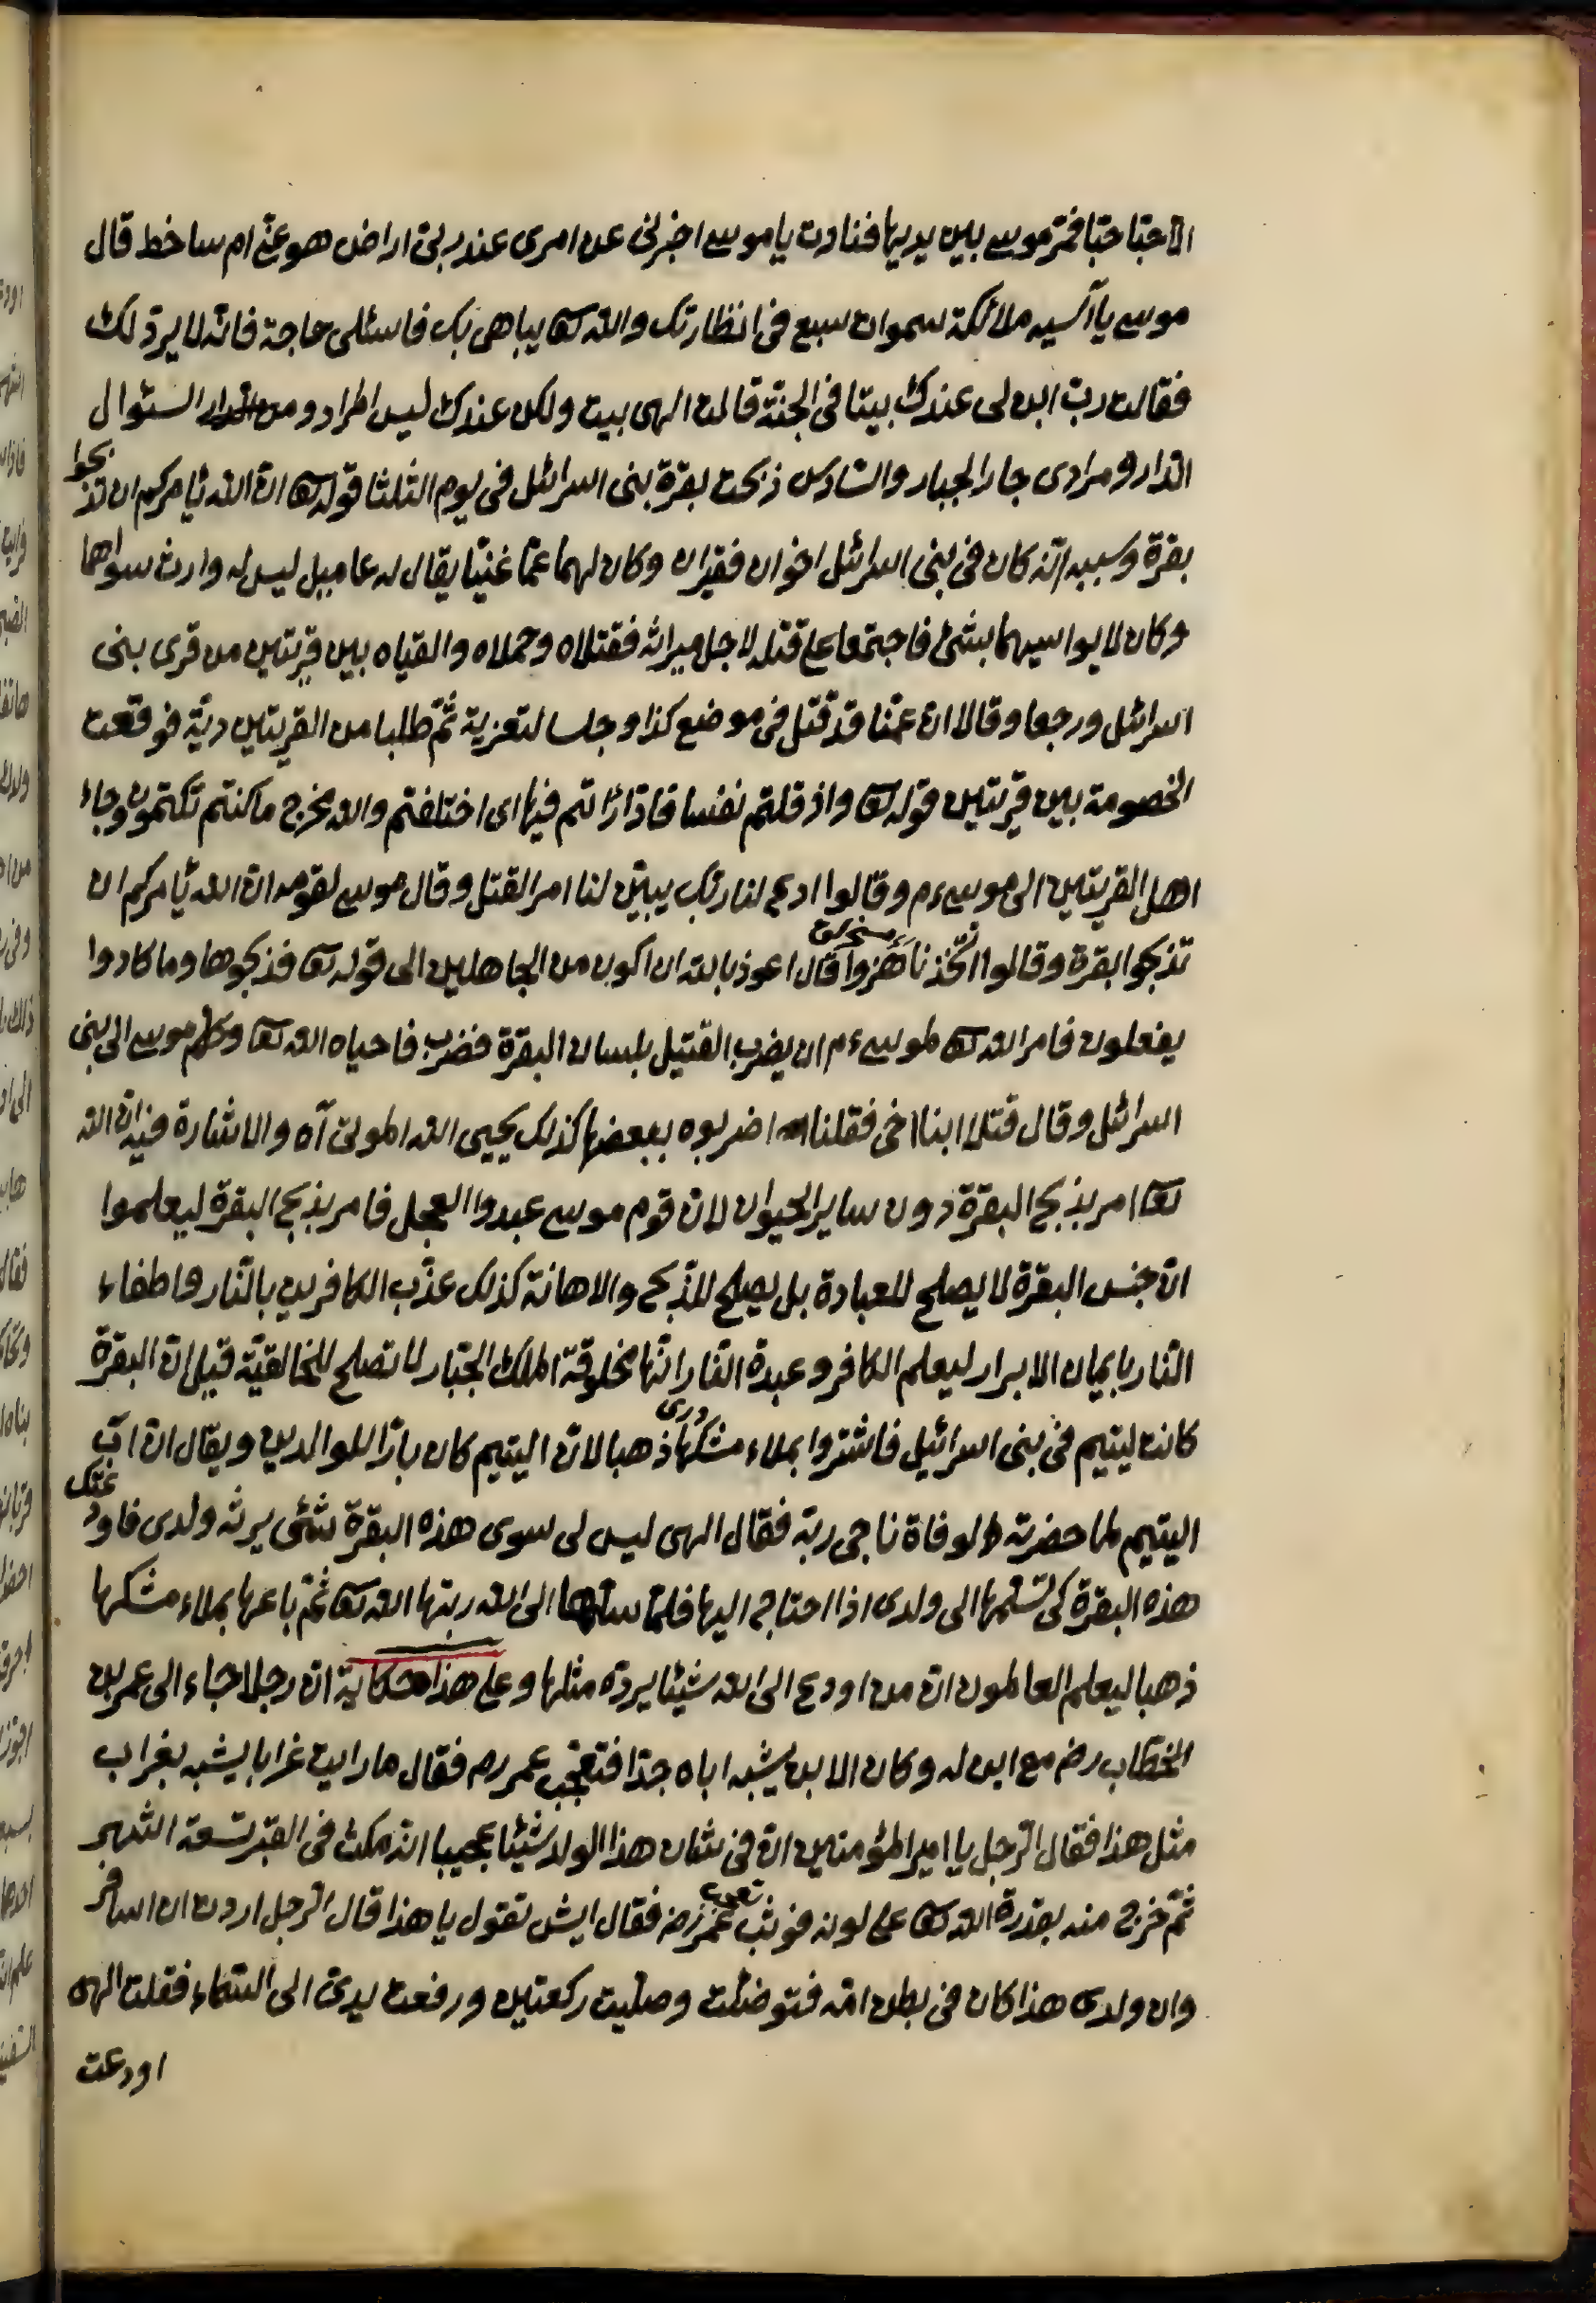 الا حبا حبا فمر موسى بين يديها فنادت يا موسى اخبرنى عن امرى عند ربى اراض هو عنى ام ساخط قال
موسى يا آسيه ملائكة سموات سبع فى انظارتك والله تعا يباهى بك فاسئلى حاجة فانه لا يرد لك
فقالت رب ابن لى عندك بيتا فى الجنة قالت الهى بيت ولكن عندك ليس المراد و من السئوال
الدار و مرادى جار الجبار والسادس ذبحت بقرة بنى اسرائل فى يوم الثلثا قوله تعا ان الله يأمركم ان تذبحوا
بقرة وسببه انه كان فى بنى اسرائل اخوان فقيران وكان لهما عمّا غنيّا يقال له عاميل ليس له وارث سواهما
وكان لا يواسيهما بشئ فاجتمعا على قتله لاجل ميراثه فقتلاه وحملاه والقياه بين قريتين من قرى بنى
اسرائل ورجعا وقالا ان عمنا قد قتل فى موضع كذا وجلسا لتعزية ثمّ طلبا من القريتين دية فوقعت
الخصومة بين قريتين قوله تعا واذ قلتم نفسا فادّارأتم فيها اى اختلفتم والله مخرج ما كنتم تكتمون وجاء
اهل القريتين الى موسى ءم وقالوا ادع لنا ربك يبين لنا امر القتل وقال موسى لقومه ان الله يأمركم ان
تذبحوا بقرة وقالوا اتّخذنا هزوا قال اعوذ بالله ان اكون من الجاهلين الى قوله تعا فذبحوها وما كادوا
يفعلون فامر الله تعا لموسى ءم ان يضرب القتيل بلسان البقرة فضرب فاحياه الله تعا وكلم موسى الى بنى
اسرائل وقال قتلا ابنا اخى فقلنا اضربوه ببعضها كذلك يحيى الله الموتى آه والاشارة فيه ان الله
تعا امر بذبح البقرة دون ساير الحيوان لان قوم موسى عبدوا العجل فامر بذبح البقرة ليعلموا
ان جنس البقرة لا يصلح للعبادة بل يصلح للذبح والاهانة كذلك عذّب الكافرين بالنار واطفاء
النار بايمان الابرار ليعلم الكافر وعبدة النار انها مخلوقة الملك الجبار لا تصلح للخالقية قيل ان البقرة
كانت ليتيم فى بنى اسرائيل فاشتروا بملاء مشكها ذهبا لان اليتيم كان بارّا للوالدين ويقال ان اب
اليتيم لما حضرته الوفاة ناجى ربه فقال الهى ليس لى سوى هذه البقرة شئى يرثه ولدى فاودعتك
هذه البقرة كى تسلمها الى ولدى اذا احتاج اليها فلما سلمها الى الله ربّها الله تعا ثمّ باعها بملاء مشكها
ذهبا ليعلم العالمون ان من اودع الى الله شيئا يرده مثلها وعلى هذا حكاية ان رجلا جاء الى عمر بن
الخطاب رضـ مع ابن له وكان الابن يشبه اباه جدّا فتعجّب عمر رضـ فقال ما رايت غرابا يشبه بغراب
مثل هذا فقال الرجل يا امير المؤمنين ان فى شان هذا الولد شيئا عجيبا انه مكث فى القبر تسعة الشهر
ثمّ خرج منه بقدرة الله تعا على لونه فوثب عمر رضـ فقال ايش تقول يا هذا قال الرجل اردت ان اسافر
وان ولدى هذا كان فى بطن امّه فتوضئت وصلّيت ركعتين ورفعت يدىّ الى السّماء فقلت الهى
اودعت